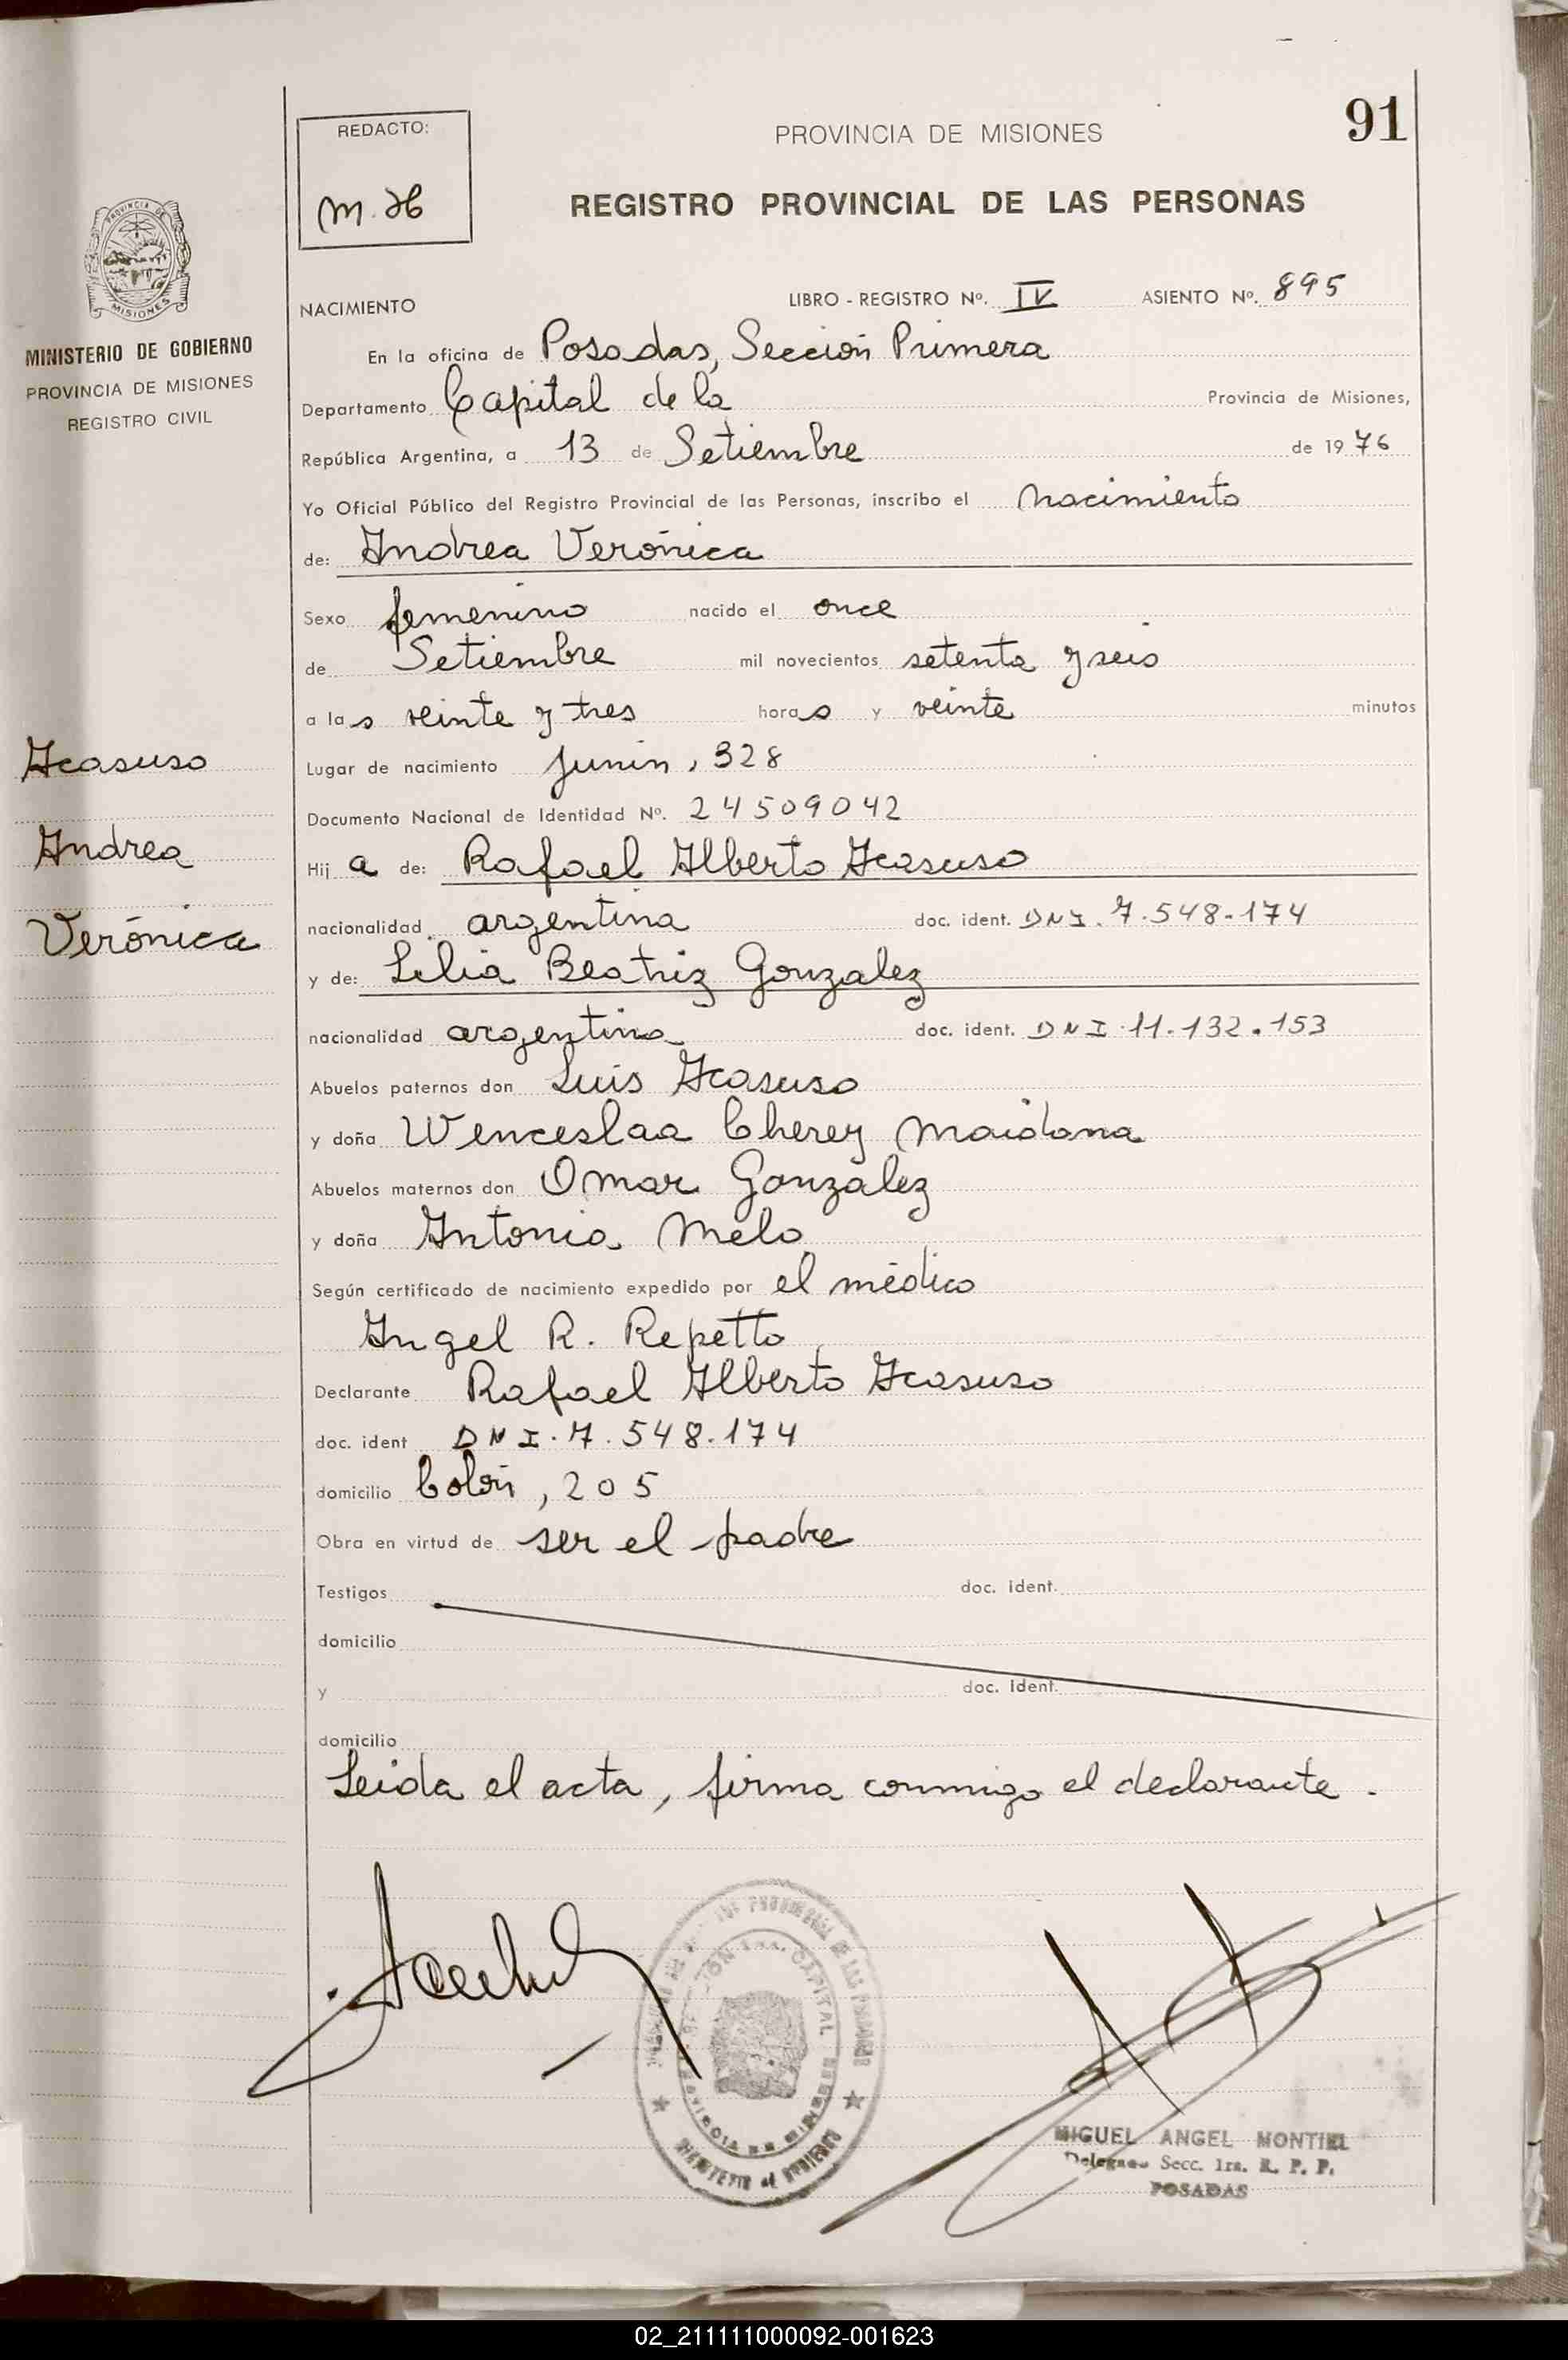 91
REDACTO:
M. H
PROVINCIA DE MISIONES
REGISTRO PROVINCIAL DE LAS PERSONAS
PROVINCIA DE
MISIONES
MINISTERIO DE GOBIERNO
PROVINCIA DE MISIONES
REGISTRO CIVIL
Acasuso
Andrea
Verónica
NACIMIENTO LIBRO - REGISTRO Nº. IV ASIENTO Nº. 895
En la oficina de Posadas, Sección Primera
Departamento Capital de la Provincia de Misiones,
República Argentina, a 13 de Setiembre de 1976
Yo Oficial Público del Registro Provincial de las Personas, inscribo el nacimiento
de: Andrea Verónica
Sexo femenino nacido el once
de Setiembre mil novecientos setenta y seis
a las veinte y tres horas y veinte minutos
Lugar de nacimiento Junín, 328
Documento Nacional de Identidad Nº. 24509042
Hija de: Rafael Alberto Acasuso
nacionalidad argentina doc. ident. DNI. 7.548-174
y de: Lilia Beatriz Gonzalez
nacionalidad argentina doc. ident. DNI 11.132.153
Abuelos paternos don Luis Acasuso
y doña Wenceslaa Cherey Maidana
Abuelos maternos don Omar Gonzalez
y doña Antonia Melo
Según certificado de nacimiento expedido por el médico
Angel R. Repetto
Declarante Rafael Alberto Acasuso
doc. ident DNI. 7.548.174
domicilio Colón, 205
Obra en virtud de ser el padre
Testigos doc. ident.
domicilio
y doc. ident.
domicilio
Leida el acta, firma conmigo el declarante.
MIGUEL ANGEL MONTIEL
Delegado Secc. 1ra. R. P. P.
POSADAS
02_211111000092-001623